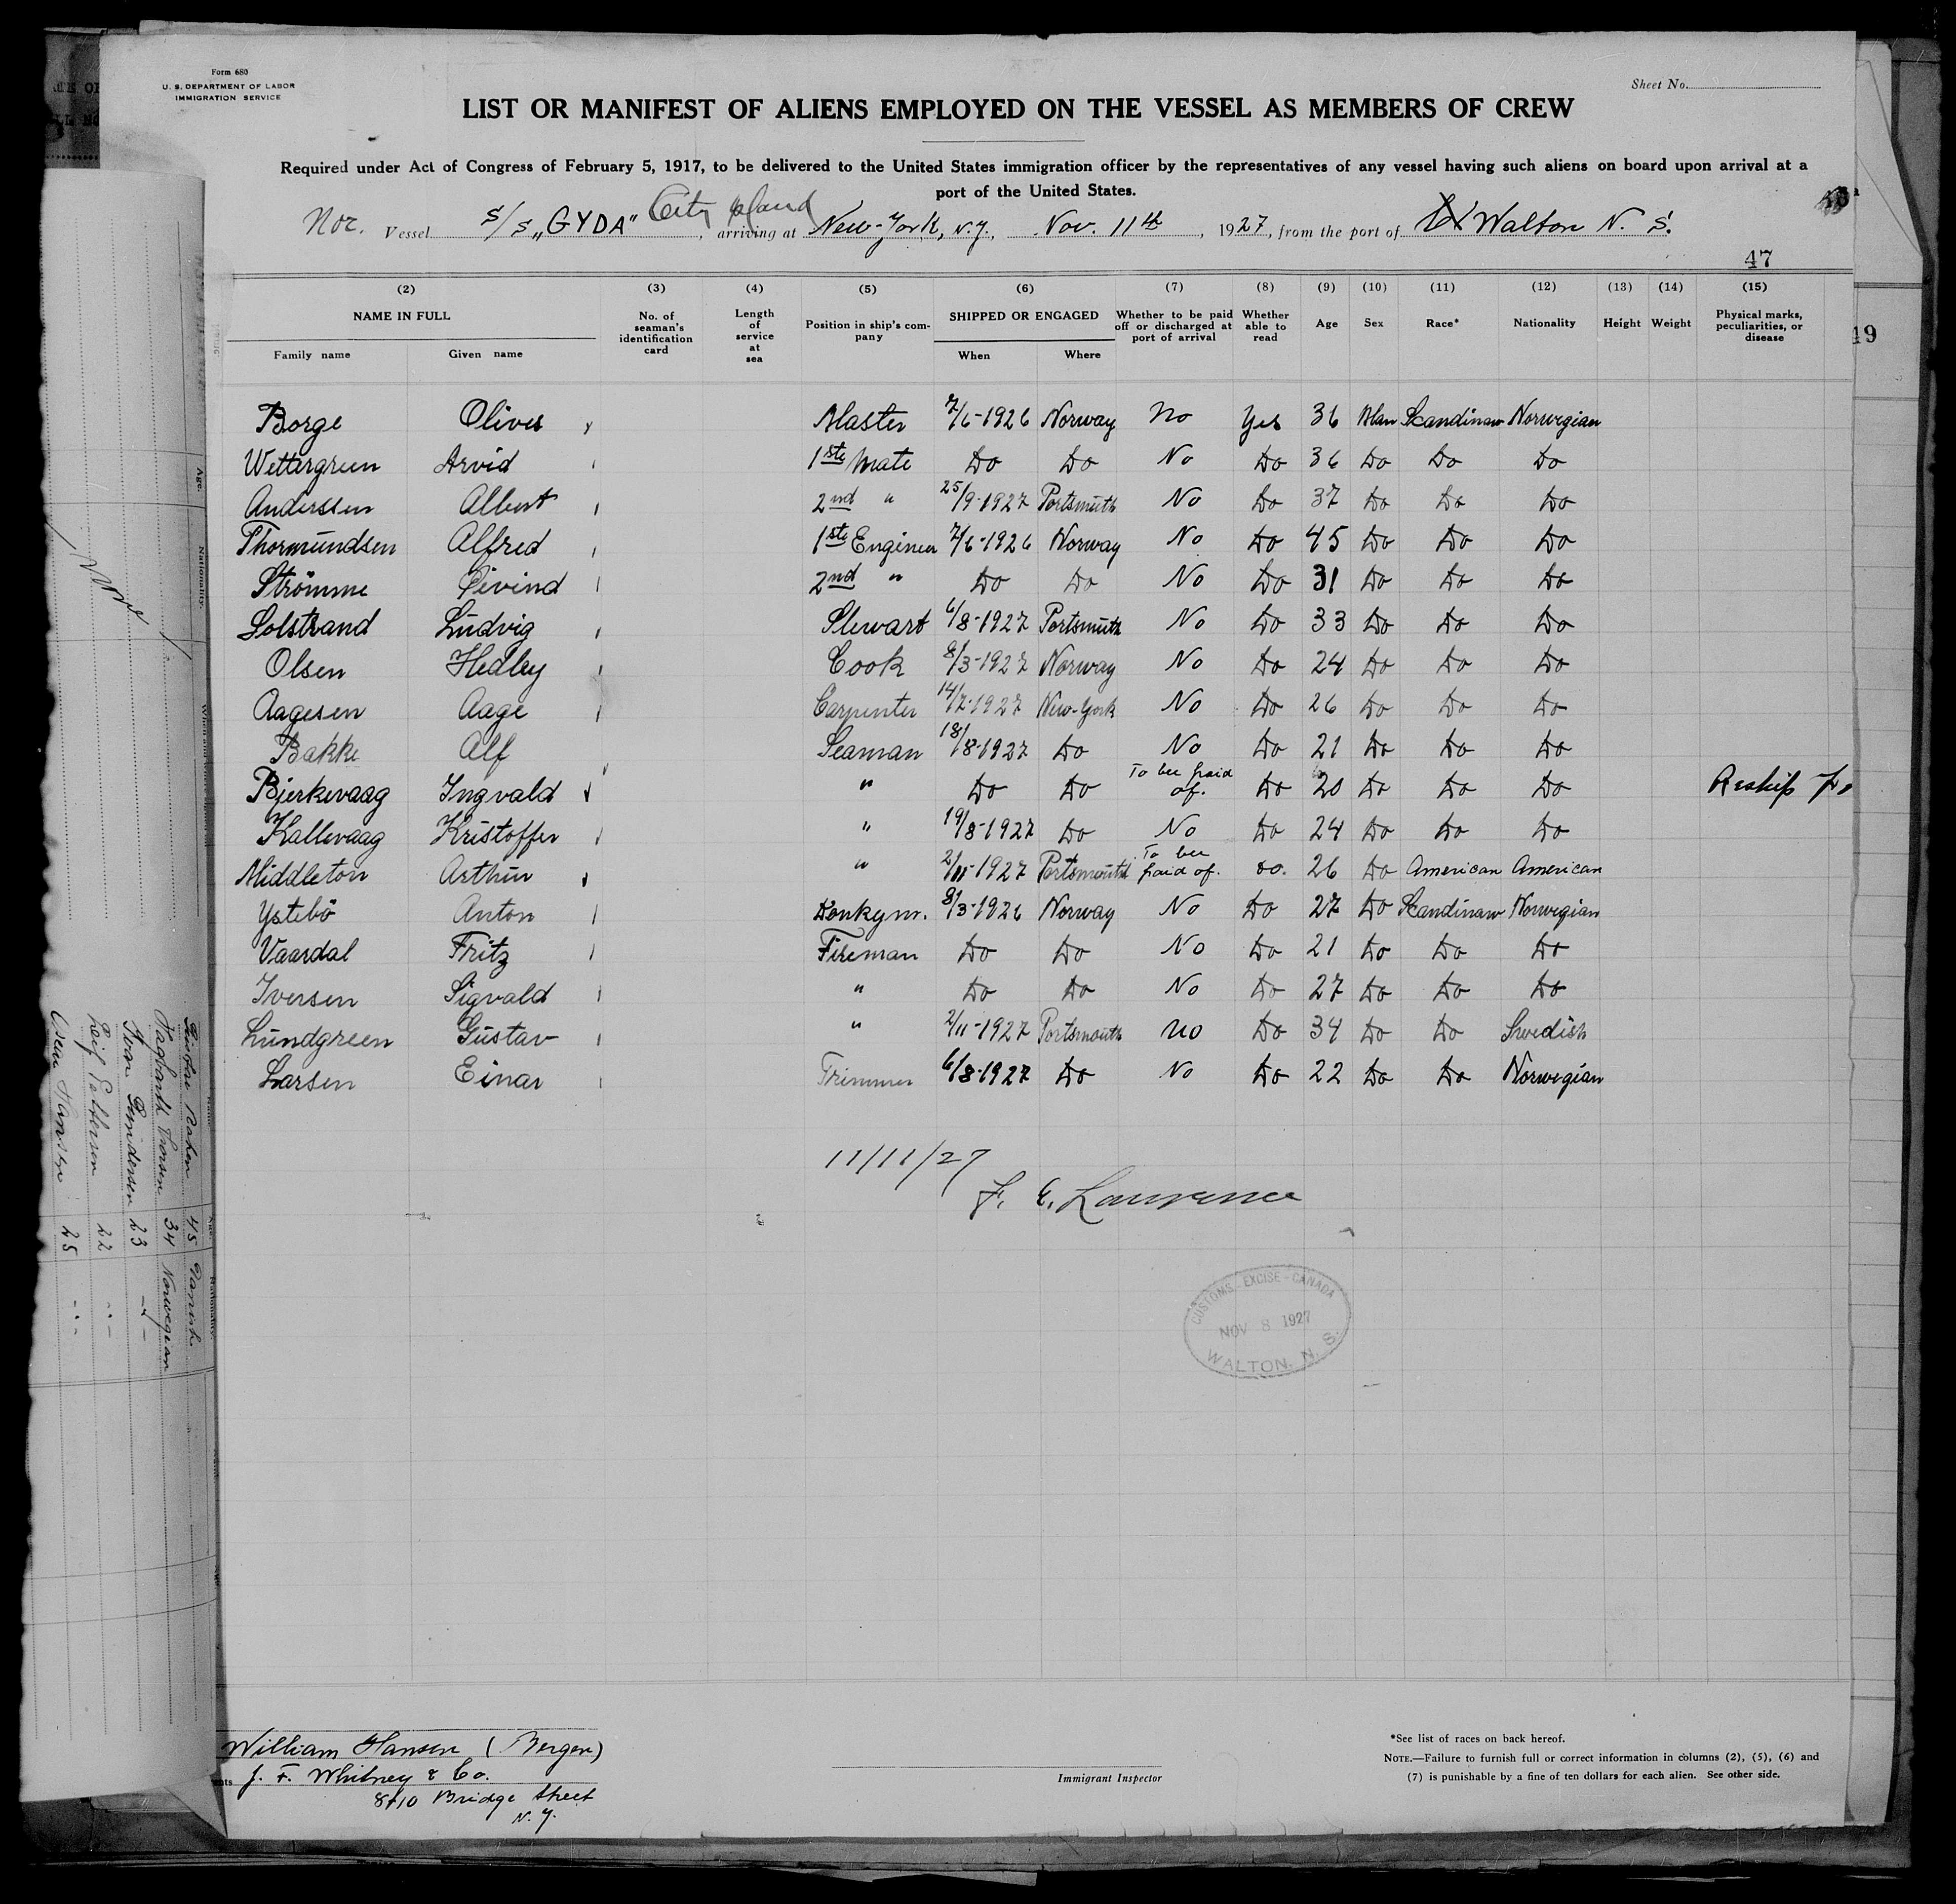 Form 680
U. S. DEPARTMENT OF LABOR
IMMIGRATION SERVICE
Sheet No.
LIST OR MANIFEST OF ALIENS EMPLOYED ON THE VESSEL AS MEMBERS OF CREW
Required under Act of Congress of February 5, 1917, to be delivered to the United States immigration officer by the representatives of any vessel having such aliens on board upon arrival at a
port of the United States.
City Island
Nor. Vessel S/S „GYDA", arriving at New-York, N.Y., Nov. 11th, 1927, from the port of Walton N. S.
47
(2) (3) (4) (5) (6) (7) (8) (9) (10) (11) (12) (13) (14) (15)
NAME IN FULL No. of seaman's identification card Length of service at sea Position in ship's company SHIPPED OR ENGAGED Whether to be paid off or discharged at port of arrival Whether able to read Age Sex Race* Nationality Height Weight Physical marks, peculiarities, or disease
Family name Given name When Where
Borge Oliver Master 7/6-1926 Norway No Yes 36 Man Scandinaw Norwegian
Wettergreen Arvid 1ste Mate Do Do No Do 36 Do Do Do
Anderssen Albert 2nd " 25/9-1927 Portsmuth No Do 37 Do Do Do
Thormundsen Alfred 1ste Engineer 7/6-1926 Norway No Do 45 Do Do Do
Strömme Öivind 2nd " Do Do No Do 31 Do Do Do
Solstrand Ludvig Stewart 6/8-1927 Portsmuth No Do 33 Do Do Do
Olsen Hedley Cook 8/3-1927 Norway No Do 24 Do Do Do
Aagesen Aage Carpenter 14/7-1927 New-York No Do 26 Do Do Do
Bakke Alf Seaman 18/8-1927 Do No Do 21 Do Do Do
Bjerkevaag Ingvald " Do Do To bee paid of. Do 20 Do Do Do Reship
Kallevaag Kristoffer " 19/8-1927 Do No Do 24 Do Do Do
Middleton Arthur " 2/11-1927 Portsmouth To bee paid of. do. 26 Do American American
Ystebö Anton Donkeym. 8/3-1926 Norway No Do 27 Do Scandinaw Norwegian
Vaardal Fritz Fireman Do Do No Do 21 Do Do Do
Iversen Sigvald " Do Do No Do 27 Do Do Do
Lundgreen Gustav " 2/11-1927 Portsmouth No Do 34 Do Do Swedish
Larsen Einar Trimmer 6/8-1927 Do No Do 22 Do Do Norwegian
11/11/27
F. E. Lawrence
CUSTOMS-EXCISE-CANADA
NOV 8 1927
WALTON, N. S.
William Hansen (Bergen)
J. F. Whitney & Co.
8+10 Bridge Street
N. Y.
Immigrant Inspector
*See list of races on back hereof.
NOTE.—Failure to furnish full or correct information in columns (2), (5), (6) and
(7) is punishable by a fine of ten dollars for each alien. See other side.
49
Age.
Nationality.
45 Danish
Thorsen 34 Norwegian
Ivar Gundersen 23
Leif Pettersen 22
Hansen 25